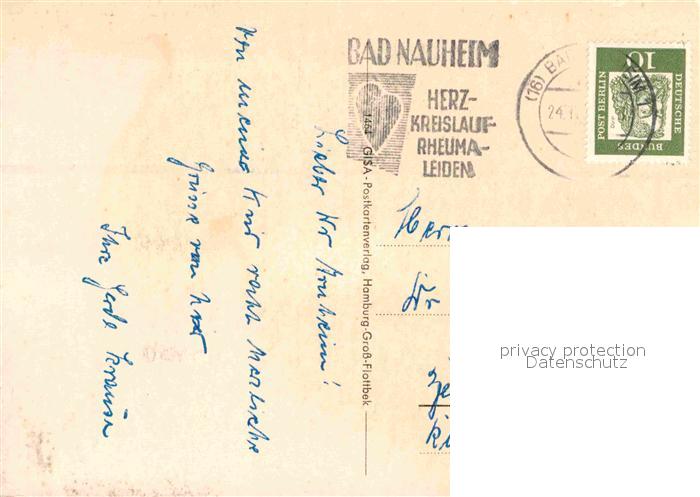 BAD NAUHEIM
HERZ-
KREISLAUF-
RHEUMA-
LEIDEN
(16) BA
24.
DEUTSCHE
BUNDES
POST BERLIN
10
1464 GISA-Postkartenverlag, Hamburg-Groß-Flottbek
Lieber Dr
Von meiner Kur recht herzliche
Grüsse von hier
Ihre Gerda Krause
Herrn
Dr
privacy protection
Datenschutz